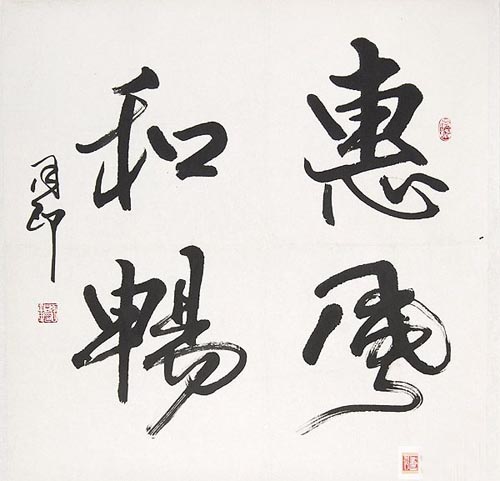 惠風
和暢
月印